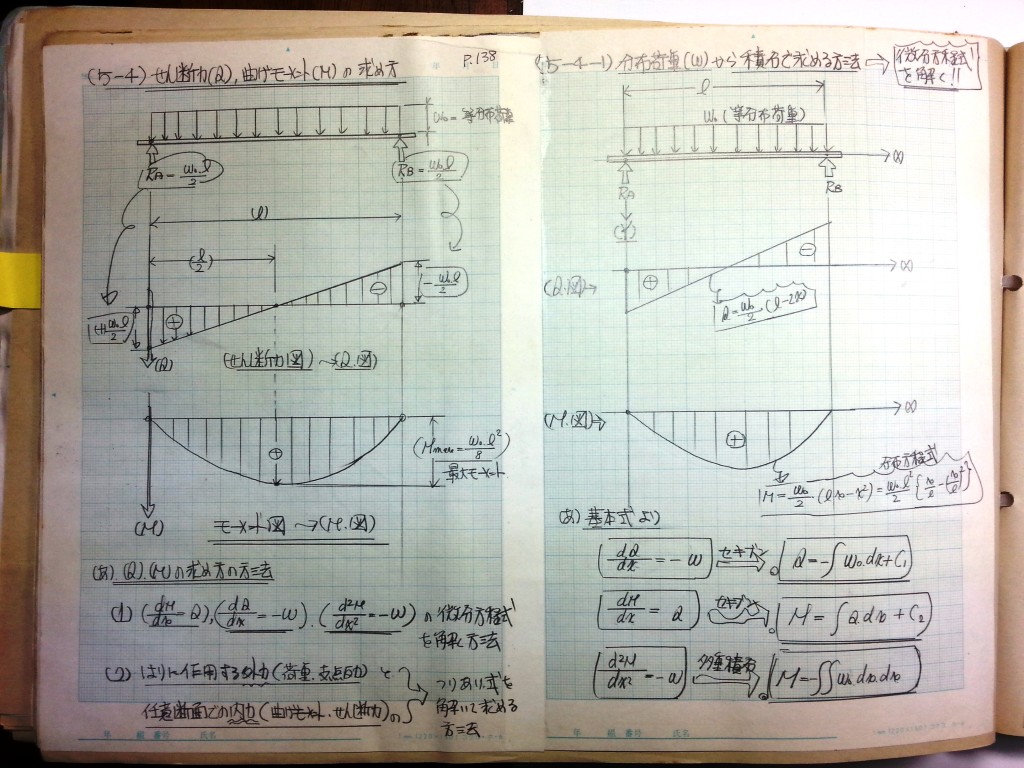 (5-4) せん断力(Q), 曲げモーメント(M)の求め方
P.138
w₀ = 等分布荷重
RA = w₀l/2
RB = w₀l/2
(l)
(l/2)
(+)w₀l/2
⊕
⊖
-w₀l/2
(Q)
(せん断力図)〜(Q.図)
⊕
(Mmax = w₀l²/8)
最大モーメント
(M)
モーメント図〜(M.図)
(あ)(Q).(M)の求め方の方法
(1) (dM/dx = Q), (dQ/dx = -w). (d²M/dx² = -w) の微分方程式
を解く方法
(2) はりに作用する外力(荷重.支点反力)と
任意断面での内力(曲げモーメント.せん断力)の
つりあい式を
解いて求める
方法
年 組 番号 氏名
(5-4-1) 分布荷重(w)から積分で求める方法 ⇒
微分方程式
を解く!!
l
w₀(等分布荷重)
x
RA
RB
(Y)
(Q.図)→
⊕
⊖
x
Q = w₀/2・(l-2x)
(M.図)→
⊕
x
分布方程式
M = w₀/2(lx-x²) = w₀l²/2{x/l-(x/l)²}
(あ) 基本式より
dQ/dx = -w セキブン Q = -∫w₀.dx+C₁
dM/dx = Q セキブン M = ∫Q dx + C₂
d²M/dx² = -w 多重積分 M = -∫∫w₀ dx.dx
年 組 番号 氏名